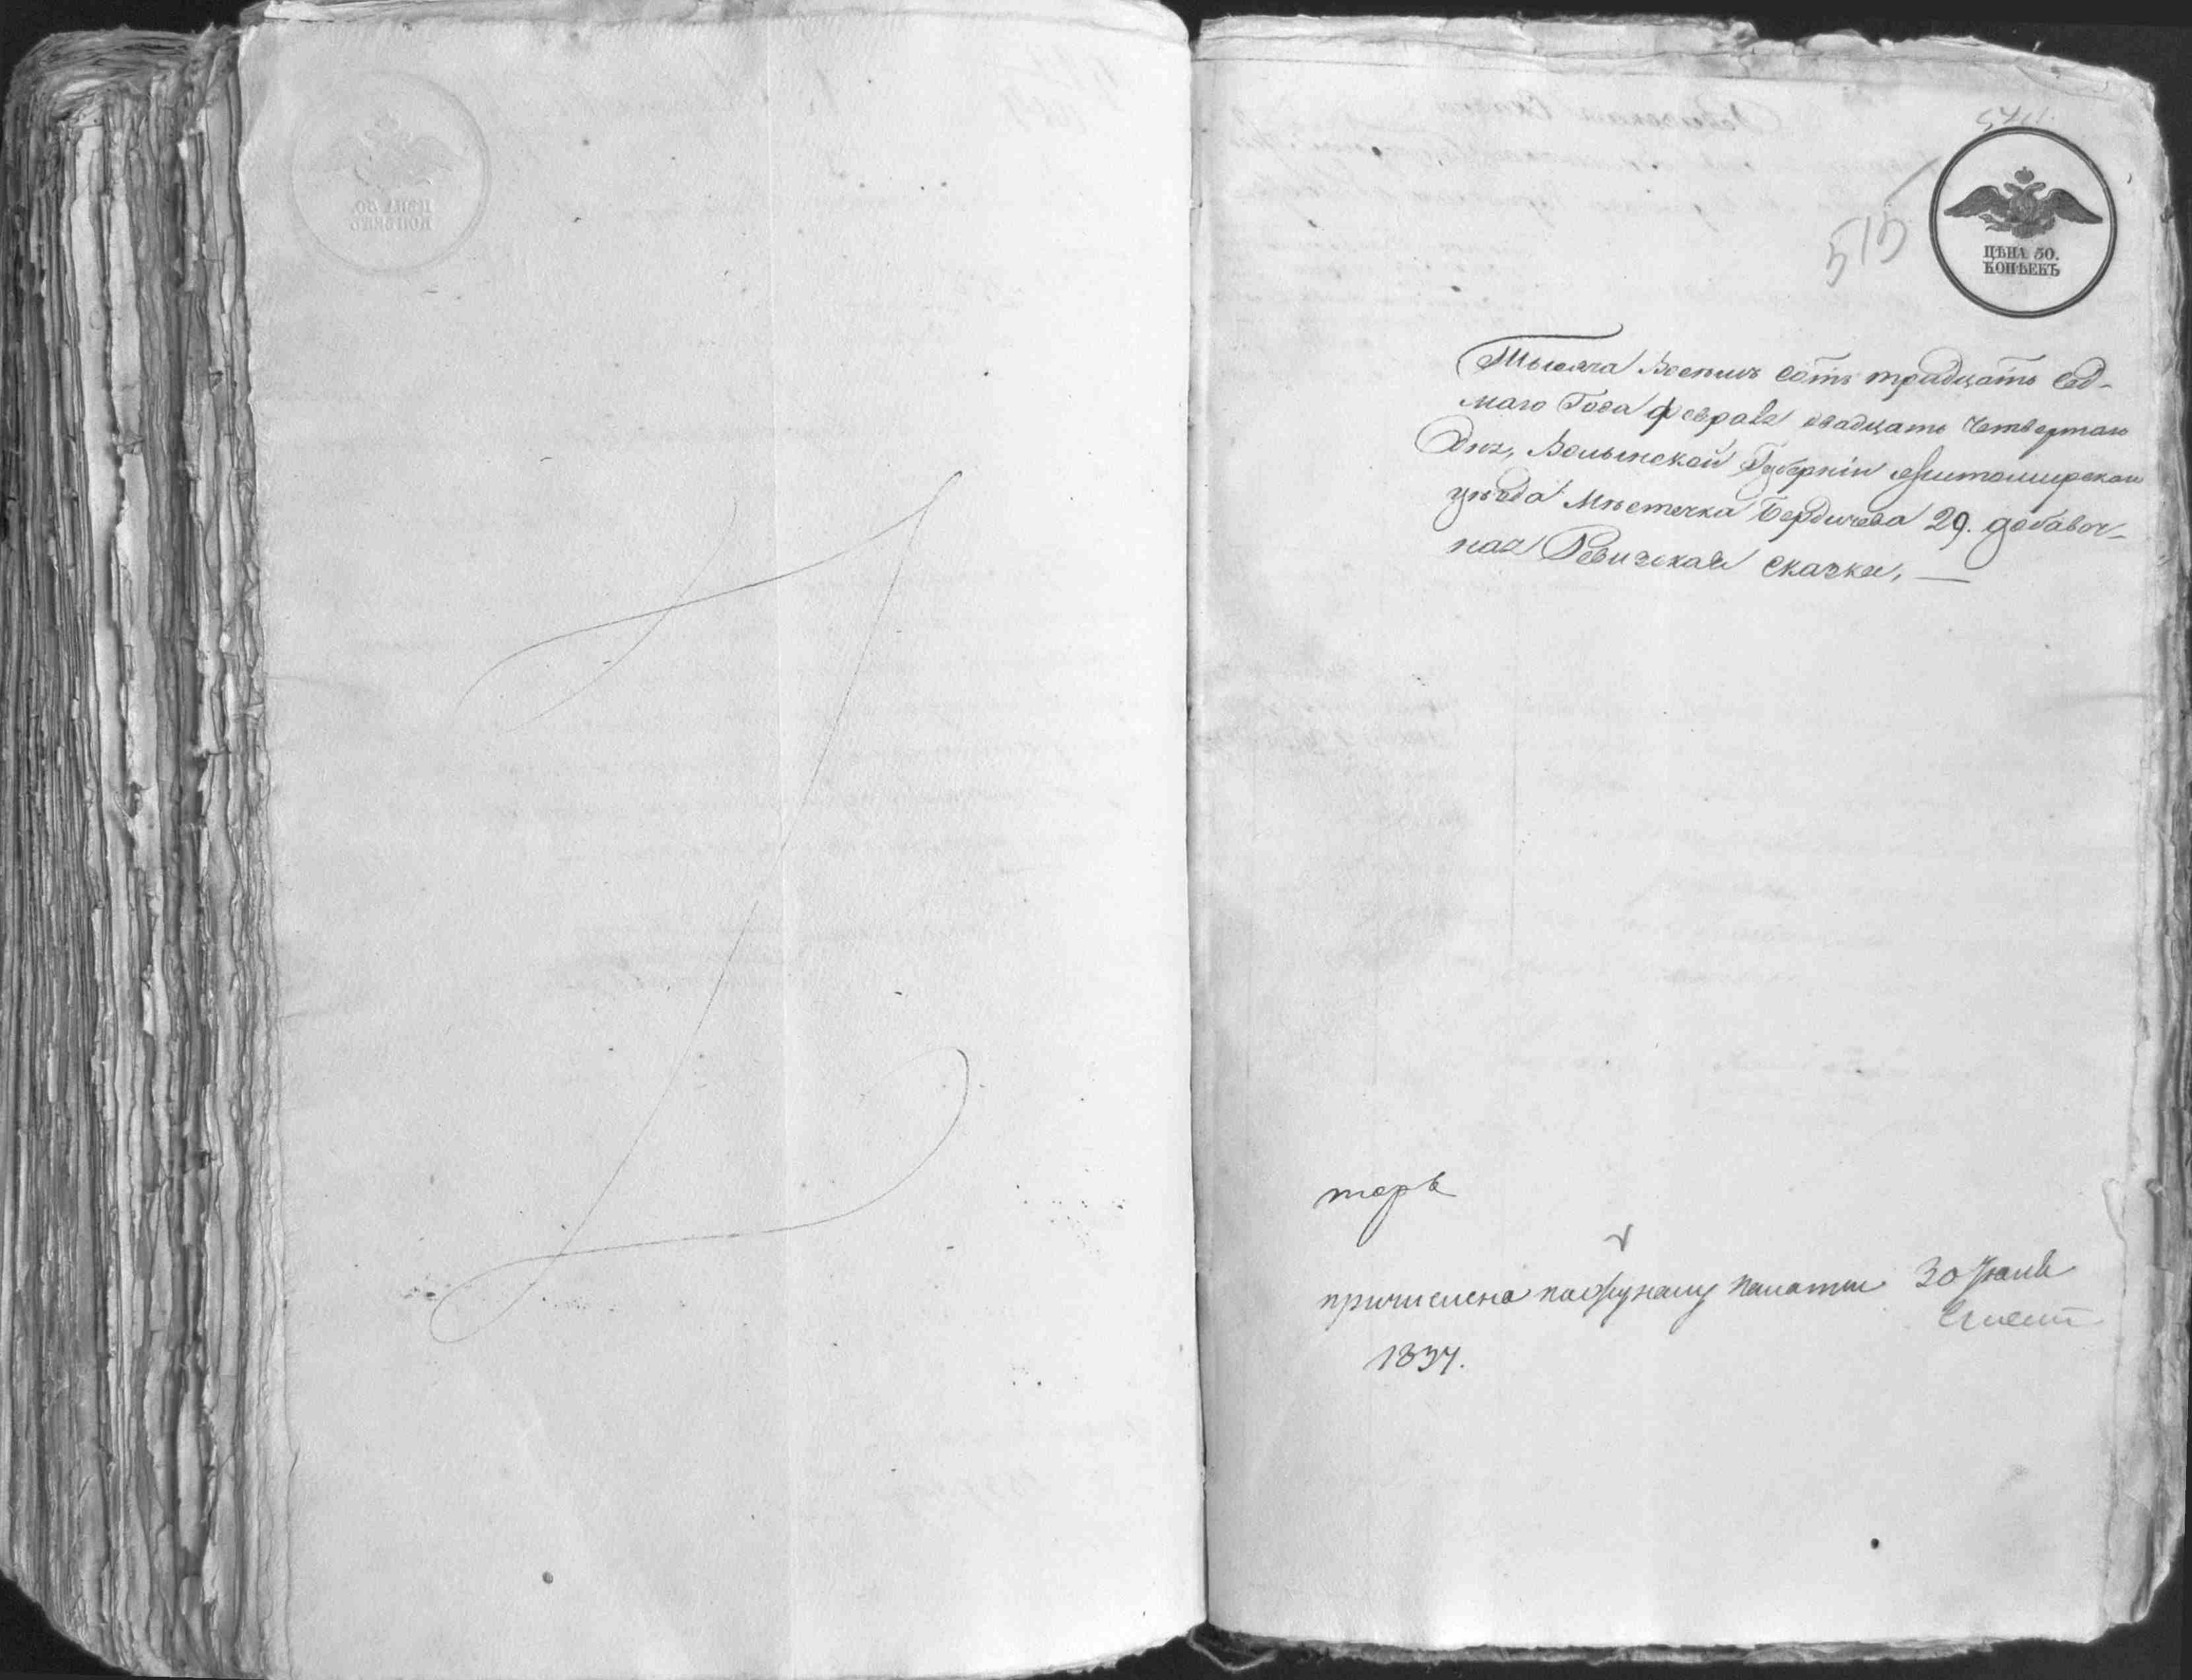 515
ЦѢНА 50.
КОПѢЕКЪ
Тысяча Восемь сотъ тридцать сед-
маго Года февраля двадцать Четвертаго
Дня, Волынской Губерніи Житомирскаго
уѣзда Мѣстечка Бердичева 29. добавоч-
ная Ревизская сказка. —
причислена по журналу палаты 30 Июля
1837.